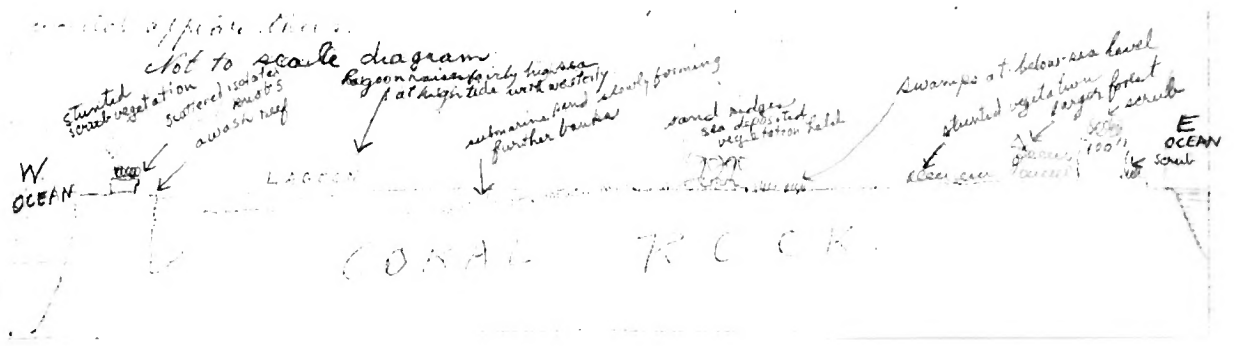 Not to scale diagram
stunted
scrub vegetation
scattered isolated
knobs
awash reef
Lagoon raises fairly high sea
at high tide with westerly
submarine sand slowly forming
further banks
sand ridges
sea deposited
vegetation held
swamps at below sea level
stunted vegetation
larger forest
scrub
100'
W.
OCEAN
LAGOON
E
OCEAN
scrub
CORAL ROCK.